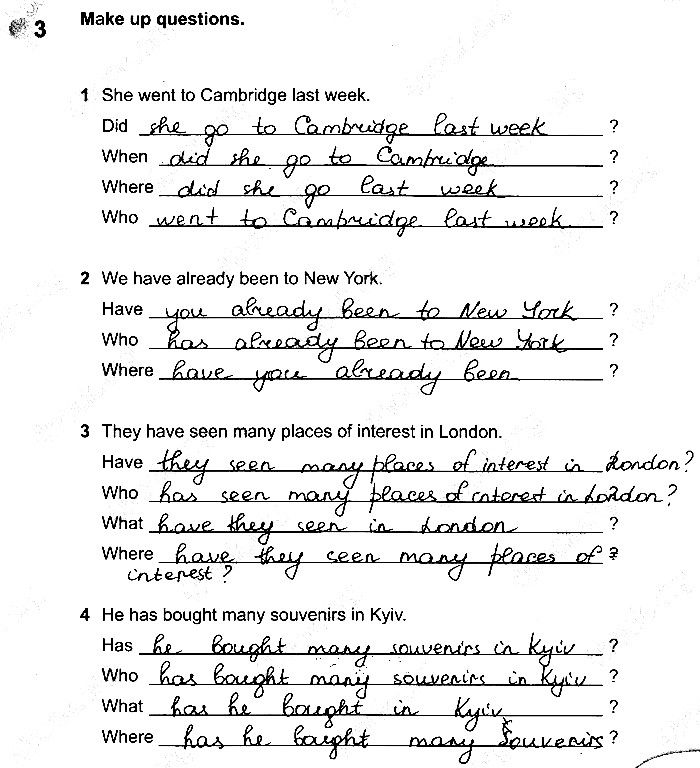 3 Make up questions.
1 She went to Cambridge last week.
Did she go to Cambridge last week ?
When did she go to Cambridge ?
Where did she go last week ?
Who went to Cambridge last week ?
2 We have already been to New York.
Have you already been to New York ?
Who has already been to New York ?
Where have you already been ?
3 They have seen many places of interest in London.
Have they seen many places of interest in London?
Who has seen many places of interest in London?
What have they seen in London ?
Where have they seen many places of ?
interest ?
4 He has bought many souvenirs in Kyiv.
Has he bought many souvenirs in Kyiv ?
Who has bought many souvenirs in Kyiv ?
What has he bought in Kyiv ?
Where has he bought many souvenirs ?